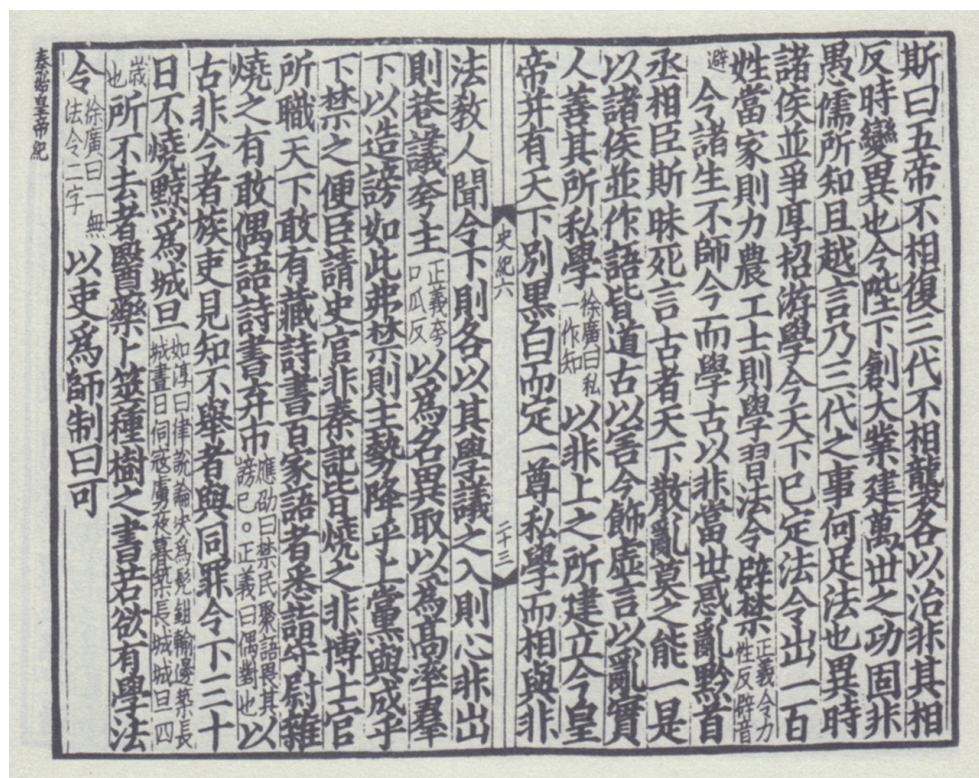 斯曰五帝不相復三代不相襲各以治非其相
反時變異也今陛下創大業建萬世之功固非
愚儒所知且越言乃三代之事何足法也異時
諸侯並爭厚招游學今天下已定法令出一百
姓當家則力農工士則學習法令辟禁正義令力性反辟音
避今諸生不師今而學古以非當世惑亂黔首
丞相臣斯昧死言古者天下散亂莫之能一是
以諸侯並作語皆道古以害今飾虛言以亂實
人善其所私學徐廣曰私一作知以非上之所建立今皇
帝并有天下別黑白而定一尊私學而相與非
史紀六 二十三
法敎人聞令下則各以其學議之入則心非出
則巷議夸主正義夸口瓜反以爲名異取以爲高率羣
下以造謗如此弗禁則主勢降乎上黨與成乎
下禁之便臣請史官非秦記皆燒之非博士官
所職天下敢有藏詩書百家語者悉詣守尉雜
燒之有敢偶語詩書弃市應劭曰禁民聚語畏其謗已。正義曰偶對也以
古非今者族吏見知不舉者與同罪令下三十
日不燒黥爲城旦如淳曰律說論決爲髡鉗輸邊築長城晝日伺寇虜夜暮築長城城旦四
歲也所不去者醫藥卜筮種樹之書若欲有學法
令徐廣曰一無法令二字以吏爲師制曰可
秦始皇帝紀